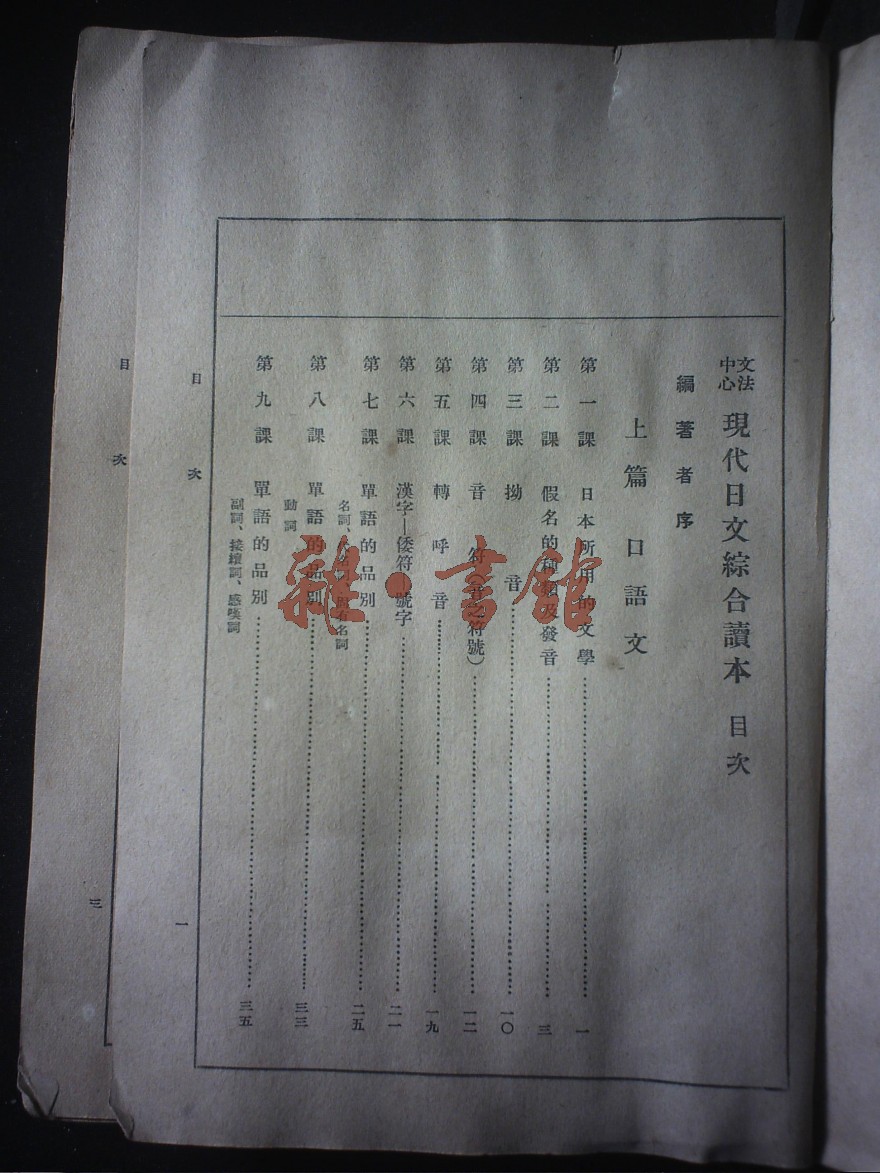 文法中心 現代日文綜合讀本 目次
編著者序
上篇 口語文
第一課 日本所用的文學 一
第二課 假名的種類及發音 三
第三課 拗音 一〇
第四課 音符(音之符號) 一二
第五課 轉呼音 一九
第六課 漢字—倭符號字 二一
第七課 單語的品別 二五
名詞、代名詞、固有名詞
第八課 單語的品別 三三
動詞
第九課 單語的品別 三五
副詞、接續詞、感嘆詞
目次
一
目次
三
雜·書館